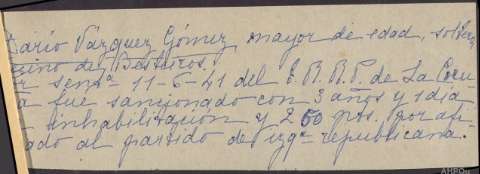 Darío Vázquez Gómez mayor de edad, soltero
vecino de Besteiros.
Por sentª 11-6-41 del T.R.R.P. de La Coru-
ña fue sancionado con 3 años y 1 dia
inhabilitación y 250 pts. por afi-
liado al partido de izqª republicana.